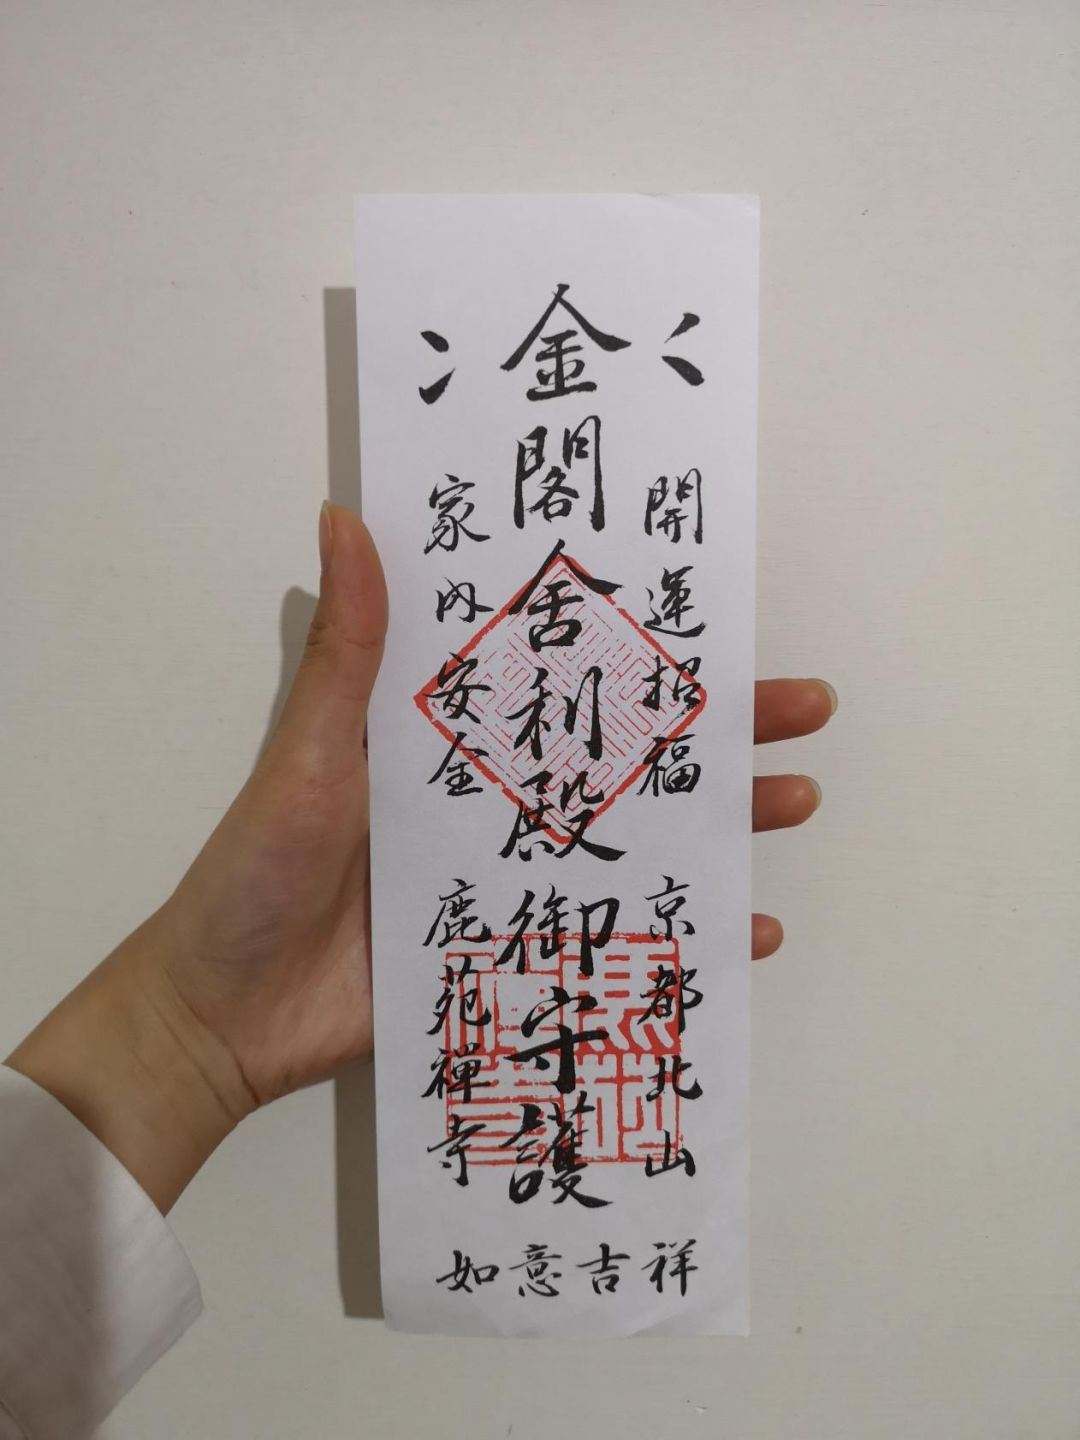 開運招福
京都北山
金閣舍利殿
御守護
家内安全
鹿苑禅寺
如意吉祥